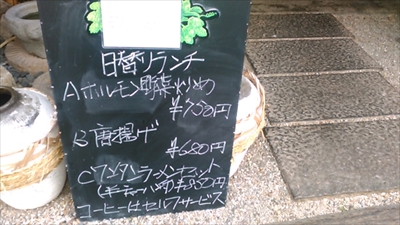 日替りランチ
Aホルモン野菜炒め
¥750円
B唐揚げ
¥680円
Cワンタンラーメンセット
(半チャーハン付)¥850円
コーヒーはセルフサービス